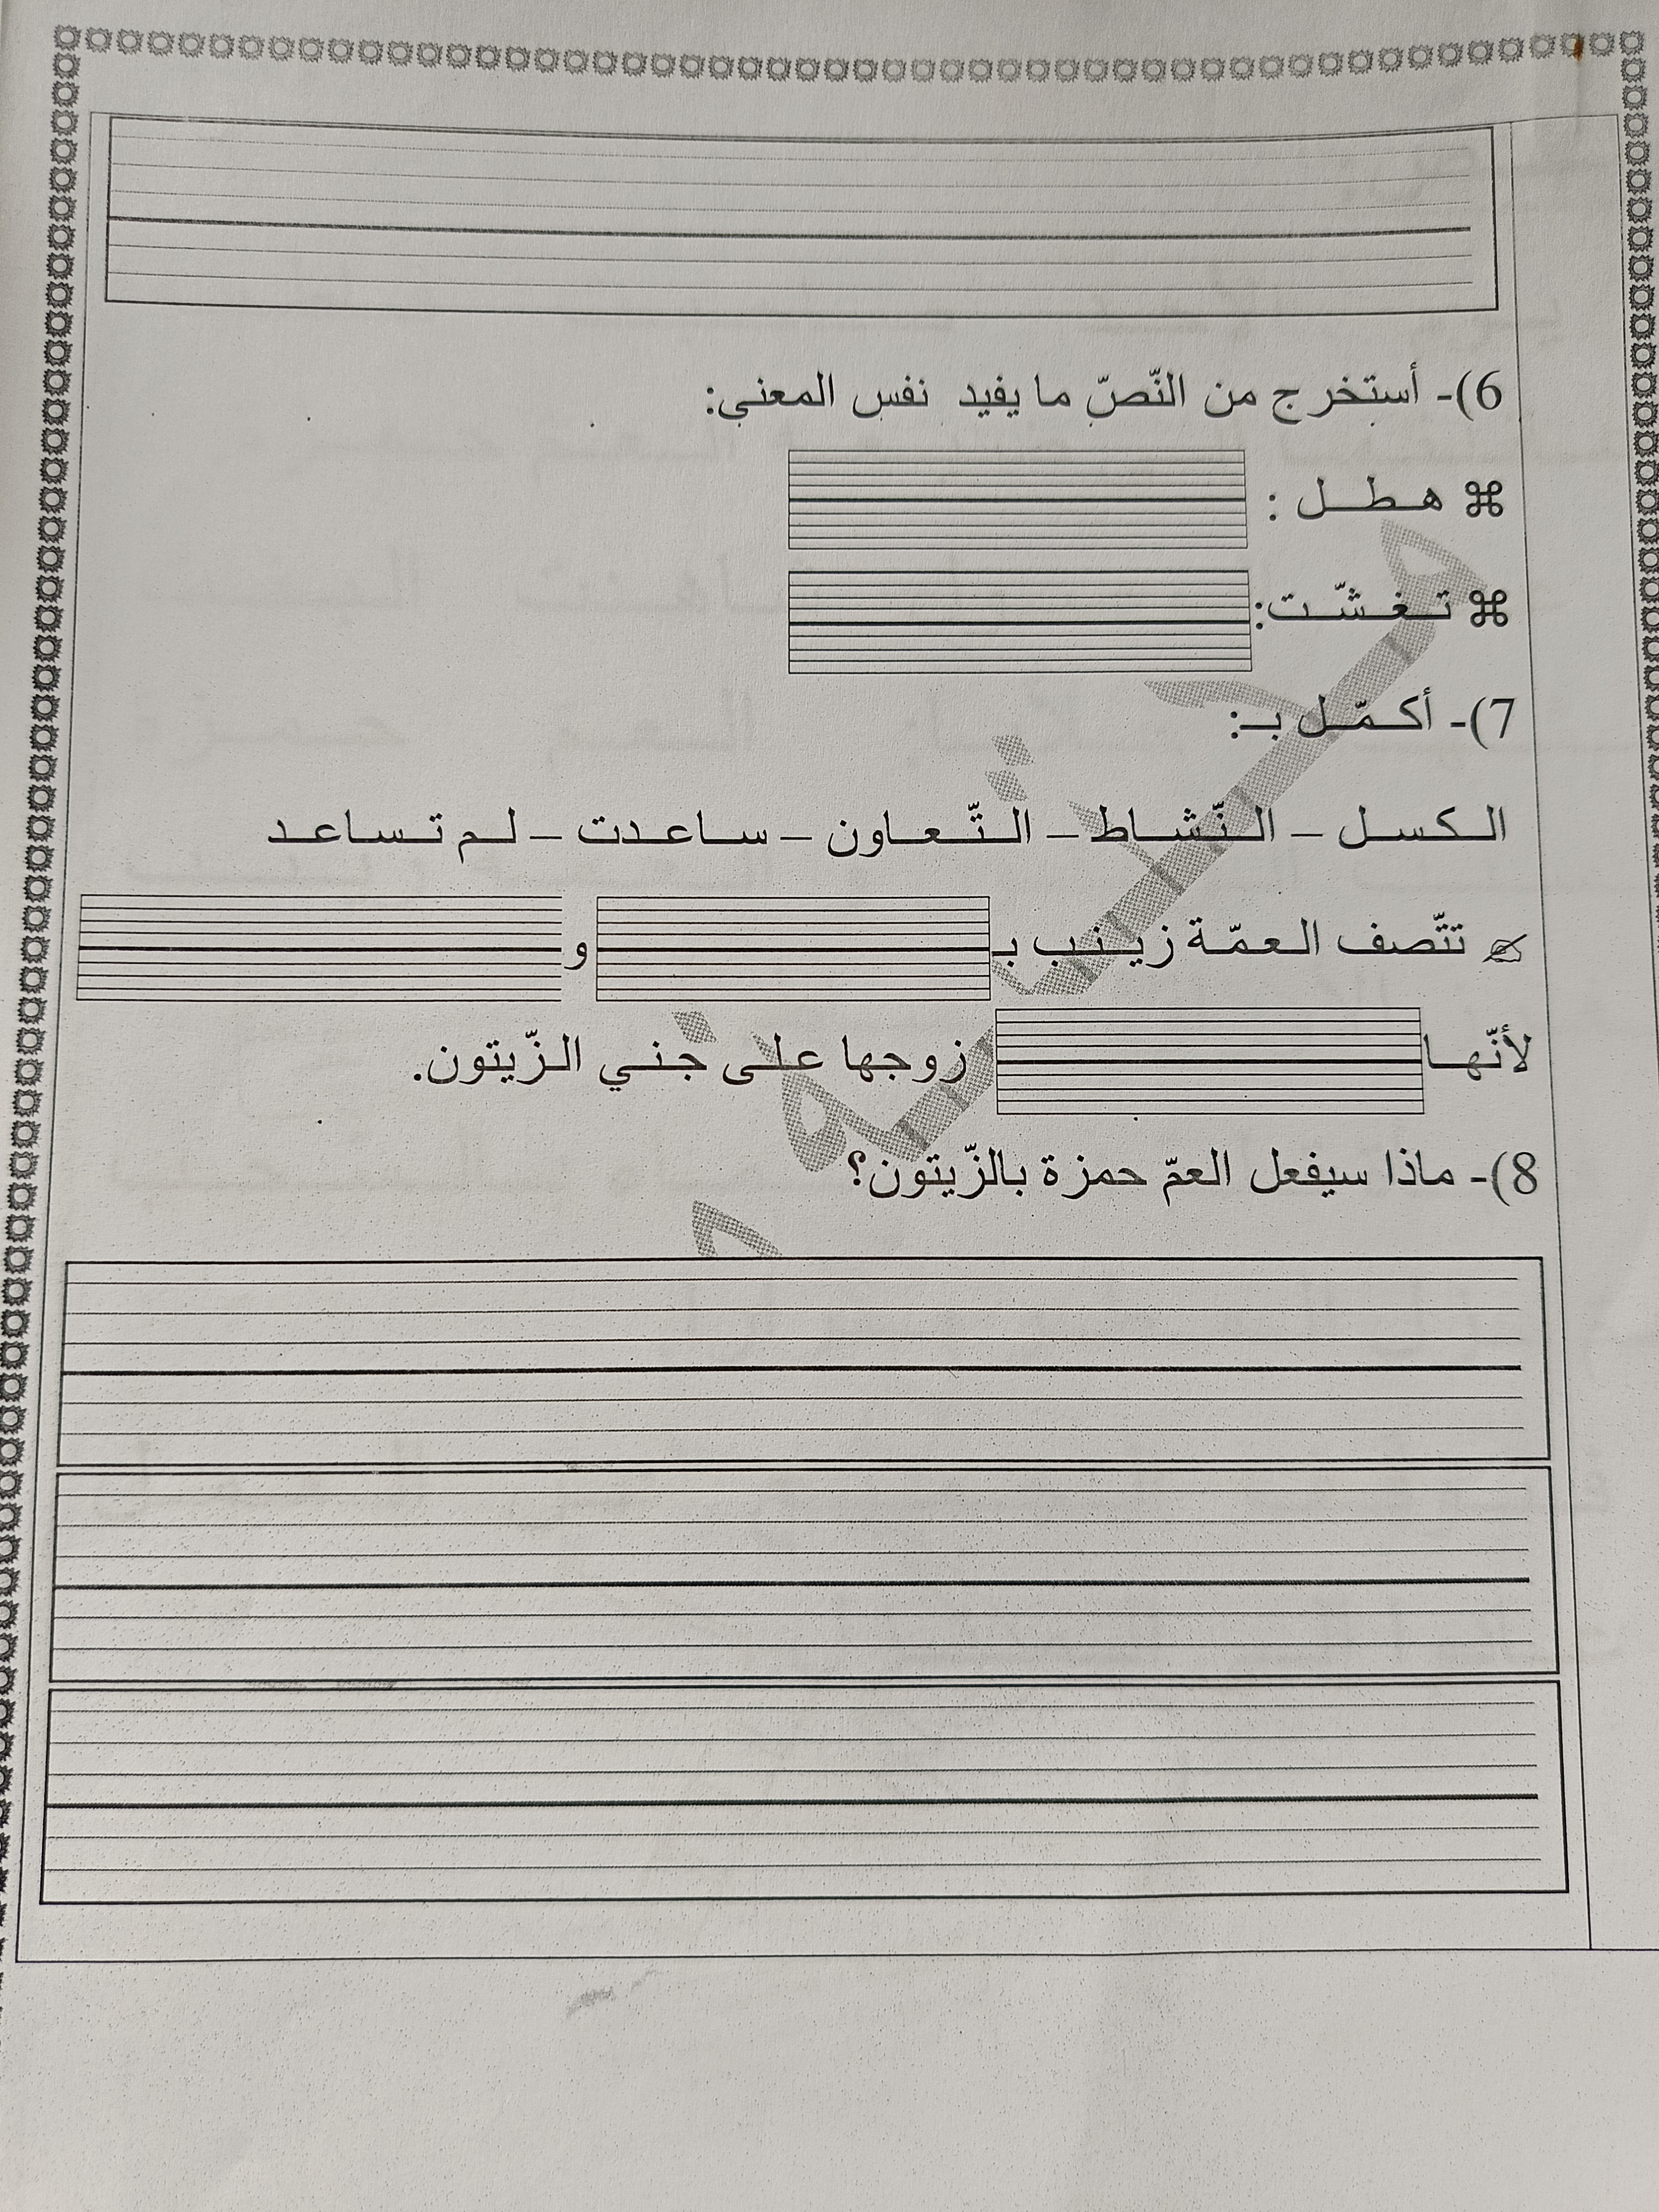 6)- أستخرج من النّصّ ما يفيد نفس المعنى:
⌘ هطل :
⌘ تغشّت:
7)- أكمّل بـ:
الكسل – النّشاط – التّعاون – ساعدت – لم تساعد
تتّصف العمّة زينب بـ و
لأنّها زوجها على جني الزّيتون.
8)- ماذا سيفعل العمّ حمزة بالزّيتون؟